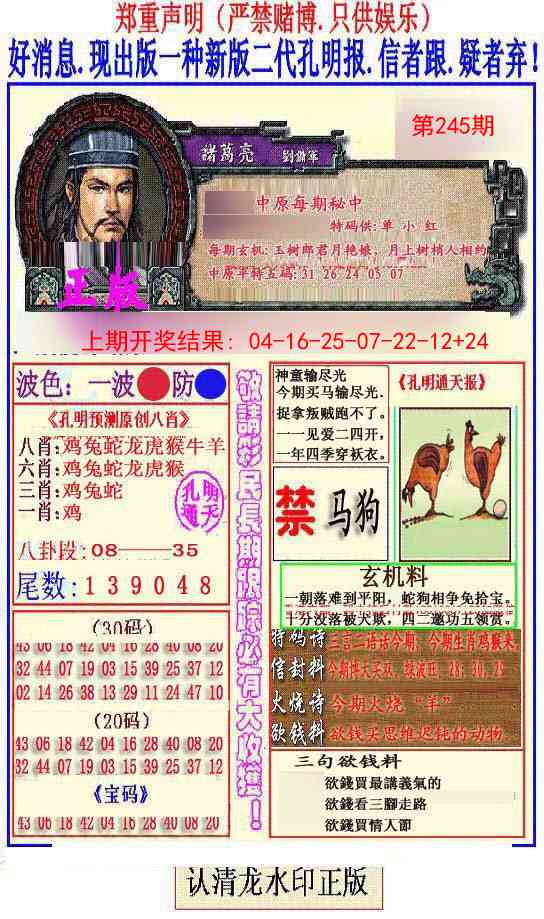 郑重声明（严禁赌博.只供娱乐）
好消息.现出版一种新版二代孔明报.信者跟.疑者弃!
第245期
諸葛亮
劉備軍
中原每期秘中
特码供:单 小 红
每期玄机:玉树郎君月艳娥，月上树梢人相约
中原平特五码:31 26 24 05 07
正版
上期开奖结果：04-16-25-07-22-12+24
波色：一波 防
《孔明预测原创八肖》
八肖:鸡兔蛇龙虎猴牛羊
六肖:鸡兔蛇龙虎猴
三肖:鸡兔蛇
一肖:鸡
孔明通天
八卦段:08——35
尾数:139048
(30码)
43 06 18 42 04 16 28 40 08 20
32 44 07 19 03 15 39 25 37 12
02 14 26 38 13 29 11 24 47 10
(20码)
43 06 18 42 04 16 28 40 08 20
32 44 07 19 03 15 39 25 37 12
《宝码》
43 06 18 42 04 16 28 40 08 20
敬請彩民長期跟踪必有大收獲！
神童输尽光
今期买马输尽光.
捉拿叛贼跑不了。
一一见爱二四开，
一年四季穿袄衣。
《孔明通天报》
禁 马狗
玄机料
一朝落难到平阳，蛇狗相争免拾宝。
十分没落被犬欺，四二邀功五领赏。
特码诗 三言二语话今期，今期生肖鸡猴来
信封料 今期博大买双，绿波旺，28，30，2
火烧诗 今期火烧“羊”
欲钱料 欲钱买思维迟钝的动物.
三句欲钱料
欲錢買最講義氣的
欲錢看三腳走路
欲錢買情人節
认清龙水印正版